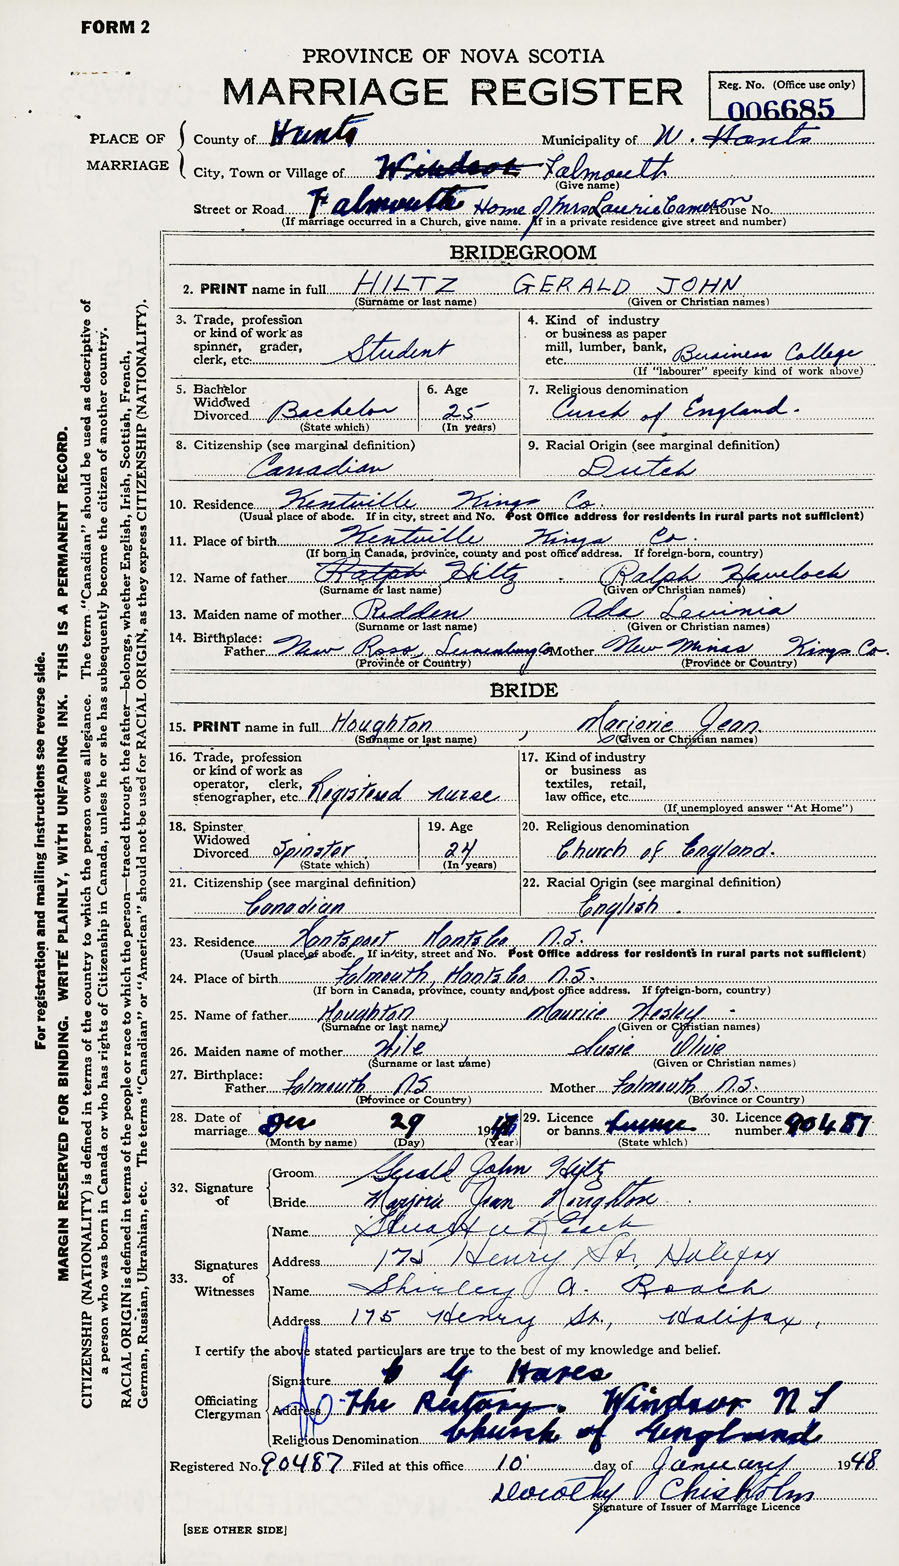 FORM 2
PROVINCE OF NOVA SCOTIA
MARRIAGE REGISTER
Reg. No. (Office use only)
006685
PLACE OF MARRIAGE
County of Hants Municipality of W. Hants
City, Town or Village of Windsor Falmouth
(Give name)
Street or Road Falmouth Home of Mrs Laurie Cameron House No.
(If marriage occurred in a Church, give name. If in a private residence give street and number)
BRIDEGROOM
2. PRINT name in full HILTZ GERALD JOHN
(Surname or last name) (Given or Christian names)
3. Trade, profession or kind of work as spinner, grader, clerk, etc: Student
4. Kind of industry or business as paper mill, lumber, bank, etc. Business College
(If "labourer" specify kind of work above)
5. Bachelor Widowed Divorced Bachelor
(State which)
6. Age 25
(In years)
7. Religious denomination
Curch of England.
8. Citizenship (see marginal definition)
Canadian
9. Racial Origin (see marginal definition)
Dutch
10. Residence Kentville Kings Co.
(Usual place of abode. If in city, street and No. Post Office address for residents in rural parts not sufficient)
11. Place of birth Kentville Kings Co.
(If born in Canada, province, county and post office address. If foreign-born, country)
12. Name of father Ralph Hiltz Ralph Havelock
(Surname or last name) (Given or Christian names)
13. Maiden name of mother Redden Ada Levinia
(Surname or last name) (Given or Christian names)
14. Birthplace:
Father New Ross, Lunenburg Co Mother New Minas Kings Co.
(Province or Country) (Province or Country)
BRIDE
15. PRINT name in full Houghton, Marjorie Jean
(Surname or last name) (Given or Christian names)
16. Trade, profession or kind of work as operator, clerk, stenographer, etc. Registered nurse
17. Kind of industry or business as textiles, retail, law office, etc.
(If unemployed answer "At Home")
18. Spinster Widowed Divorced Spinster
(State which)
19. Age 24
(In years)
20. Religious denomination
Church of England.
21. Citizenship (see marginal definition)
Canadian
22. Racial Origin (see marginal definition)
English.
23. Residence Hantsport Hants Co. N.S.
(Usual place of abode. If in city, street and No. Post Office address for residents in rural parts not sufficient)
24. Place of birth Falmouth, Hants Co N.S.
(If born in Canada, province, county and/post office address. If foreign-born, country)
25. Name of father Houghton, Maurice Wesley
(Surname or last name) (Given or Christian names)
26. Maiden name of mother Hile Susie Olive
(Surname or last name) (Given or Christian names)
27. Birthplace:
Father Falmouth NS Mother Falmouth N.S.
(Province or Country) (Province or Country)
28. Date of marriage Dec 29 1947
(Month by name) (Day) (Year)
29. Licence or banns License
(State which)
30. Licence number 90487
32. Signature of
Groom Gerald John Hiltz
Bride Marjorie Jean Houghton
33. Signatures of Witnesses
Name
Address 175 Henry St., Halifax
Name Shirley A. Roach
Address 175 Henry St., Halifax,
I certify the above stated particulars are true to the best of my knowledge and belief.
Officiating Clergyman
Signature G Hares
Address The Rectory. Windsor N S
Religious Denomination Church of England
Registered No. 90487 Filed at this office 10 day of January 1948
Dorothy Chisholm
Signature of Issuer of Marriage Licence
[SEE OTHER SIDE]
For registration and mailing instructions see reverse side.
MARGIN RESERVED FOR BINDING. WRITE PLAINLY, WITH UNFADING INK. THIS IS A PERMANENT RECORD.
CITIZENSHIP (NATIONALITY) is defined in terms of the country to which the person owes allegiance. The term "Canadian" should be used as descriptive of
a person who was born in Canada or who has rights of Citizenship in Canada, unless he or she has subsequently become the citizen of another country.
RACIAL ORIGIN is defined in terms of the people or race to which the person—traced through the father—belongs, whether English, Irish, Scottish, French,
German, Russian, Ukrainian, etc. The terms "Canadian" or "American" should not be used for RACIAL ORIGIN, as they express CITIZENSHIP (NATIONALITY).